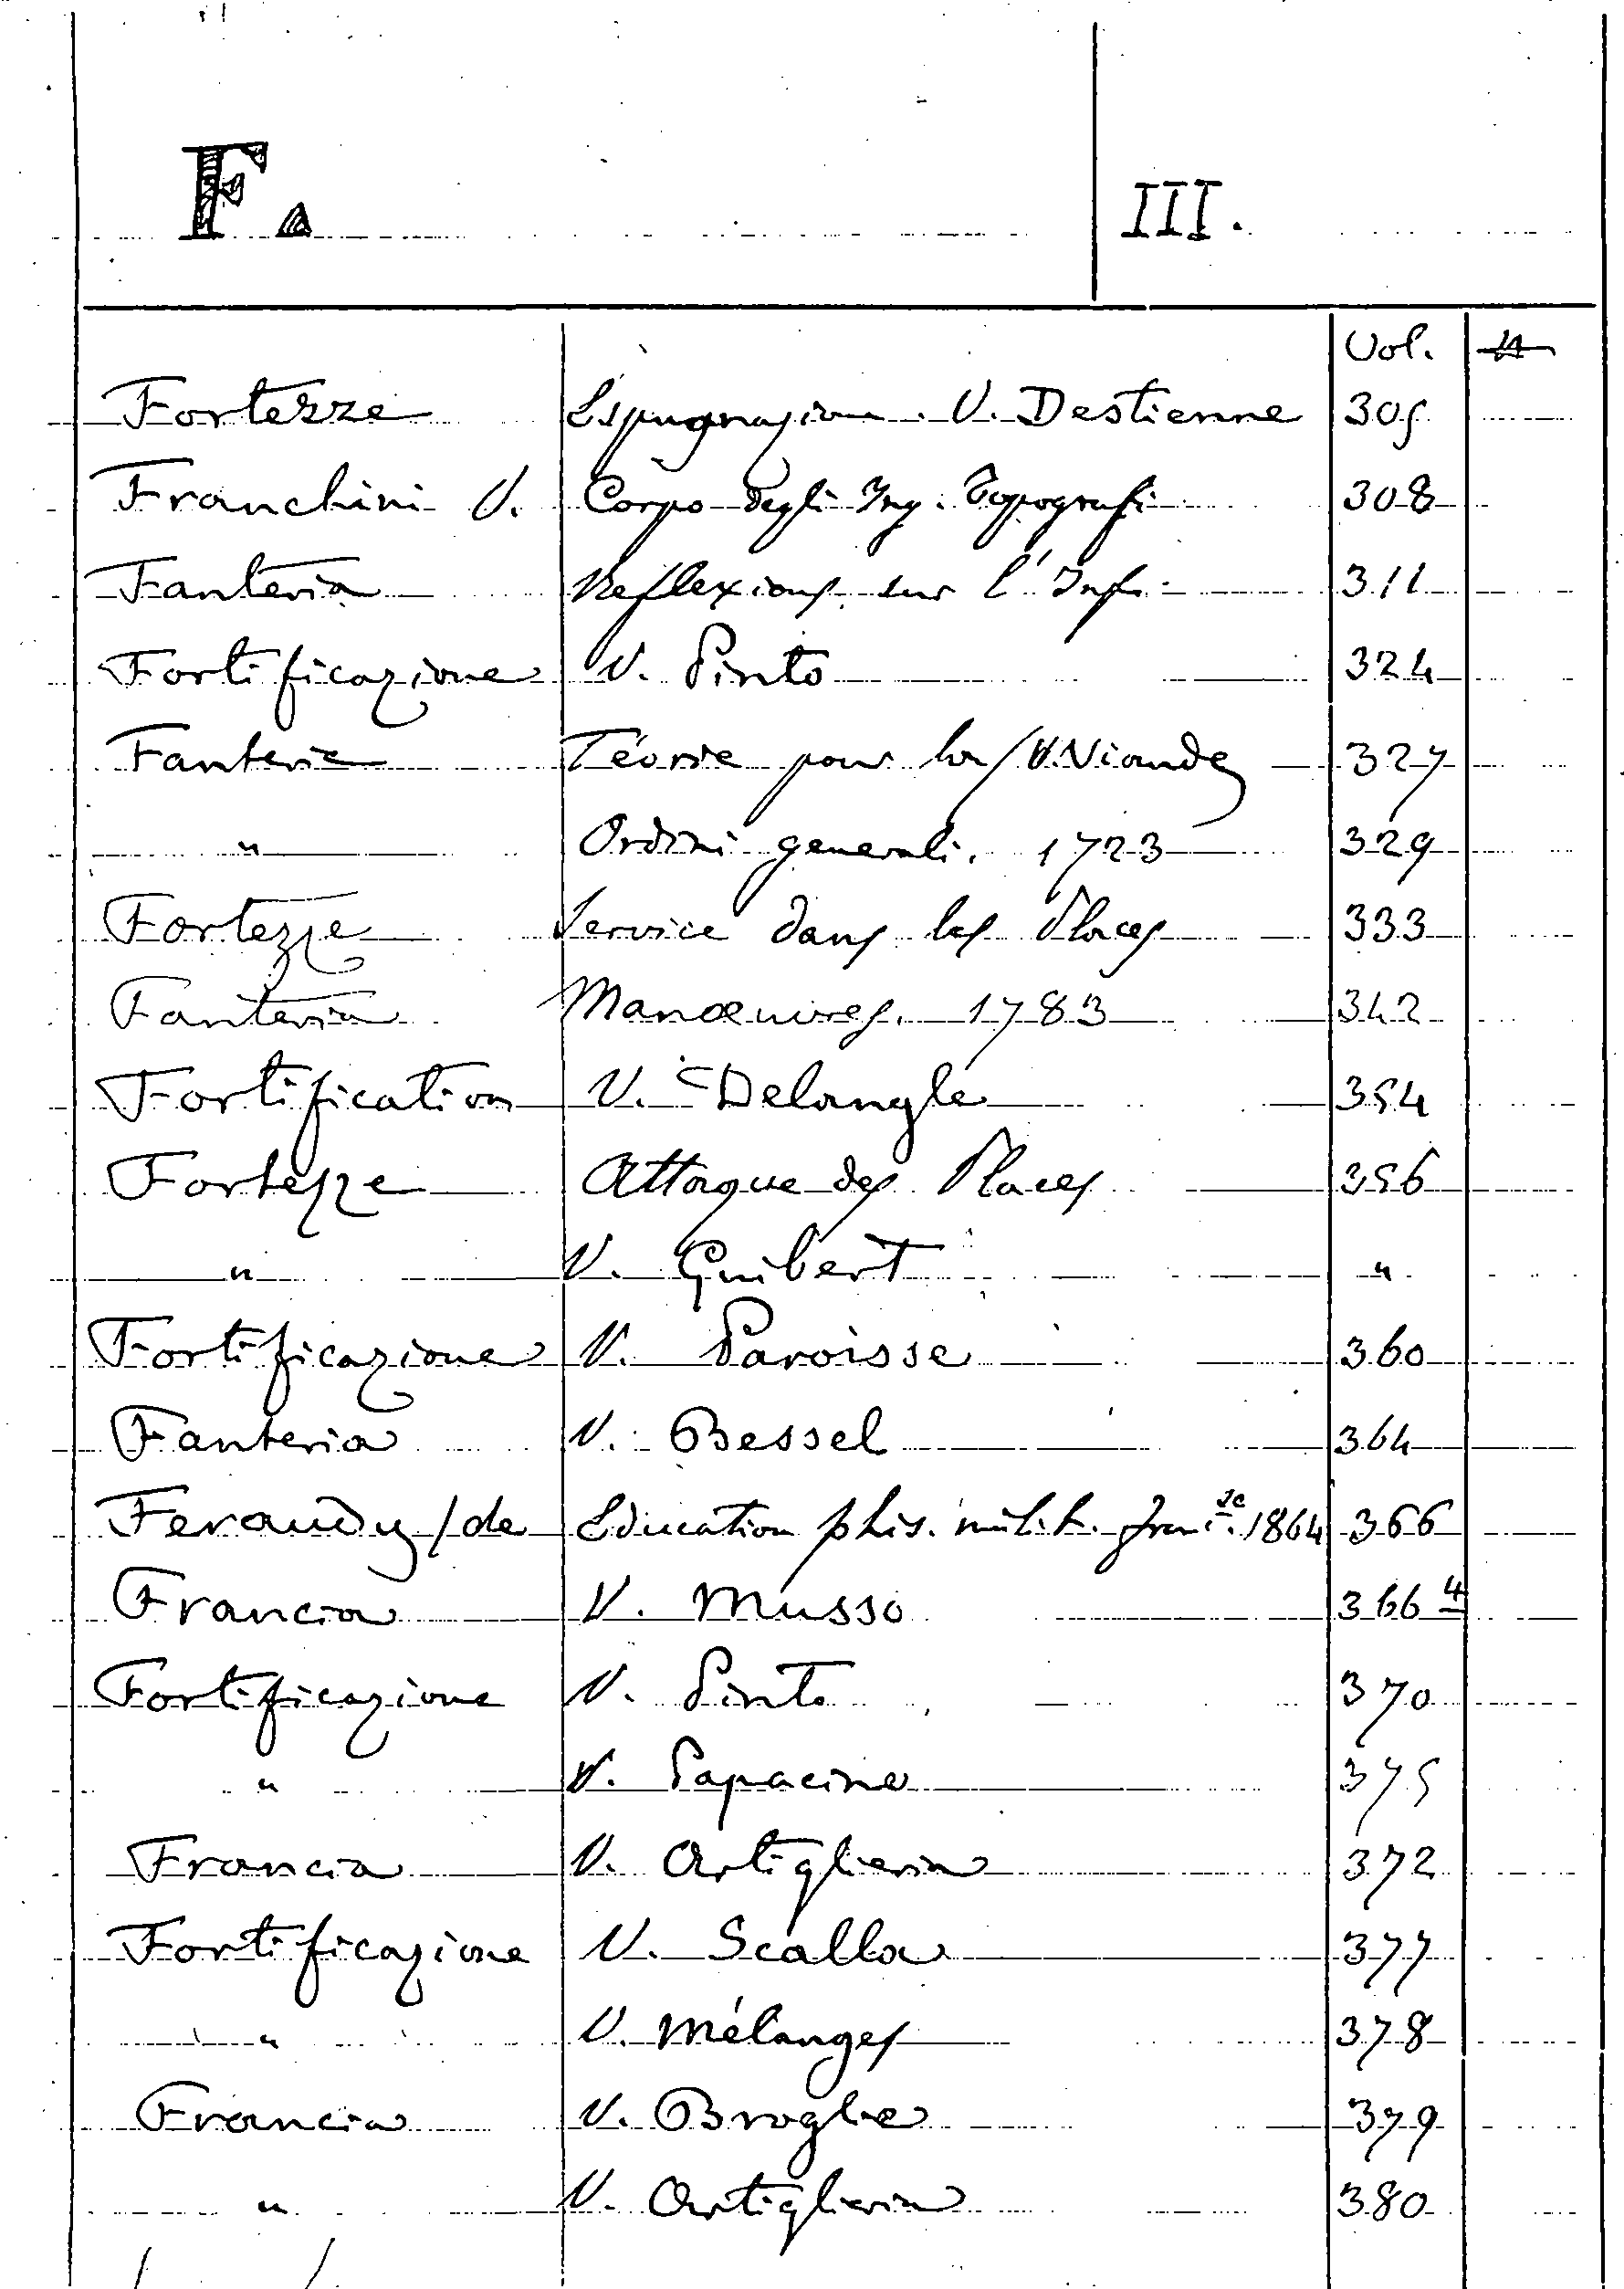 F. III.
Vol. n
Fortezze Espugnazione. V. Destienne 305
Franchini V. Corpo degli Ing. Topografi 308
Fanteria Reflexions sur l'Inf. 311
Fortificazione V. Pinto 324
Fanteria Téorie pour la / V. Viande 327
" Ordini generali. 1723 329
Fortezze Service dans les Places 333
Fanteria Manœuvres. 1783 342
Fortification V. Delangle 354
Fortezze Attaque des Places 356
" V. Guibert "
Fortificazione V. Paroisse 360
Fanteria V. Bessel 364
Feraudy / de Education phis. milit. 1864 366
Francia V. Musso 366 4
Fortificazione V. Pinto 370
" V. Papacino 375
Francia V. Artiglieria 372
Fortificazione V. Scalla 377
" V. Mélanges 378
Francia V. Broglie 379
" V. Artiglieria 380